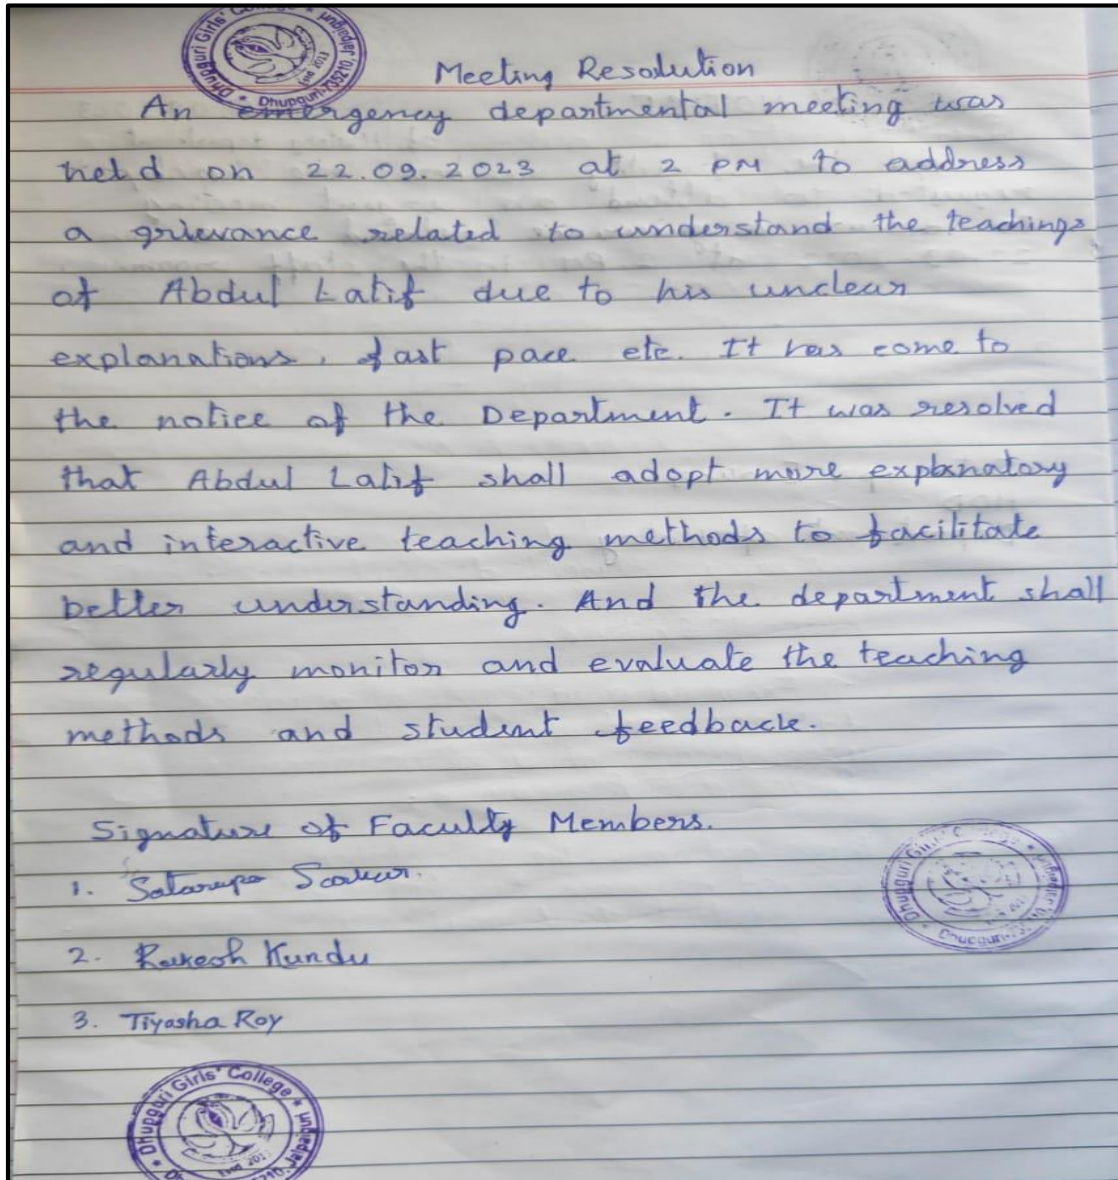 Dhupguri Girls' College * Jalpaiguri
Estd 2013
Dhupguri-735210,
Meeting Resolution
An emergency departmental meeting was
held on 22.09.2023 at 2 PM to address
a grievance related to understand the teachings
of Abdul Latif due to his unclear
explanations, fast pace etc. It has come to
the notice of the Department. It was resolved
that Abdul Latif shall adopt more explanatory
and interactive teaching methods to facilitate
better understanding. And the department shall
regularly monitor and evaluate the teaching
methods and student feedback.
Signature of Faculty Members.
1. Satarupa Sarkar.
Dhupguri Girls' College
Dhupguri
2. Rakesh Kundu
3. Tiyasha Roy
Dhupguri Girls' College * Jalpaiguri
Estd 2013